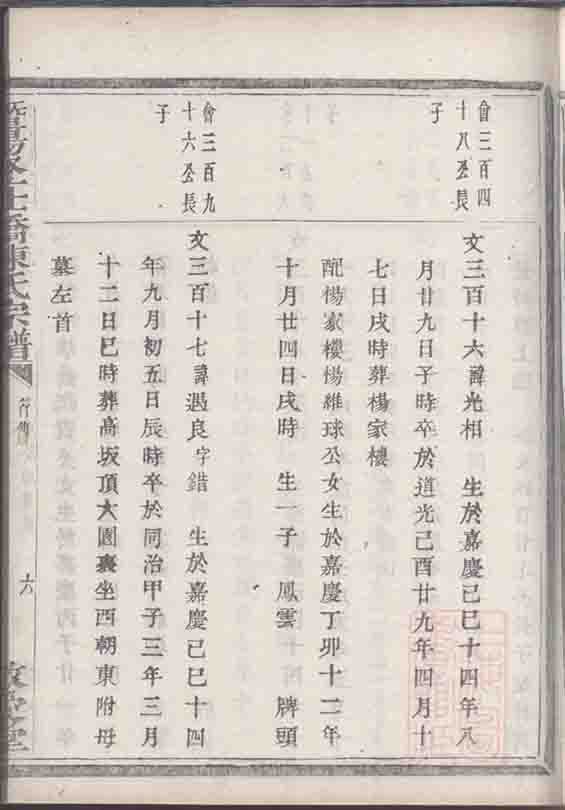 會三百四
十八公長
子
文三百十六諱光相　生於嘉慶己巳十四年八
月廿九日子時卒於道光己酉廿九年四月十
七日戌時葬楊家樓
配楊家樓楊維球公女生於嘉慶丁卯十二年
十月廿四日戌時　生一子　鳳雲　牌頭
會三百九
十六公長
子
文三百十七諱遇良字錯　生於嘉慶己巳十四
年九月初五日辰時卒於同治甲子三年三月
十二日巳時葬高坂頂大園裏坐西朝東附母
墓左首
橋陳氏宗譜
行傳
六